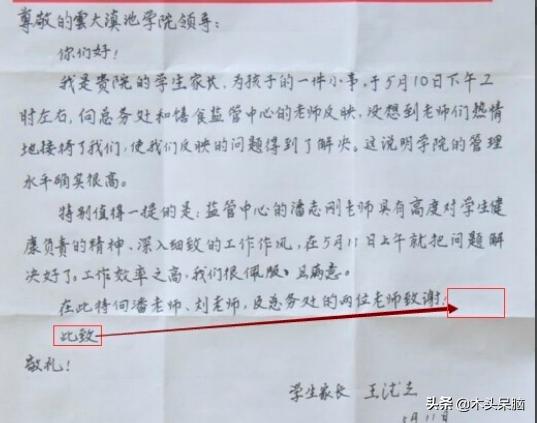 尊敬的雲大滇池学院领导:
你们好!
我是贵院的学生家长,为孩子的一件小事,于5月10日下午2
时左右,向总务处和膳食监管中心的老师反映,没想到老师们热情
地接待了我们,使我们反映的问题得到了解决。这说明学院的管理
水平确实很高。
特别值得一提的是:监管中心的潘志刚老师具有高度对学生健
康负责的精神、深入细致的工作作风,在5月11日上午就把问题解
决好了。工作效率之高,我们很佩服、且满意。
在此特向潘老师、刘老师,及总务处的两位老师致谢!
此致
敬礼!
学生家长 王
5月11日
头条 @木头呆脑